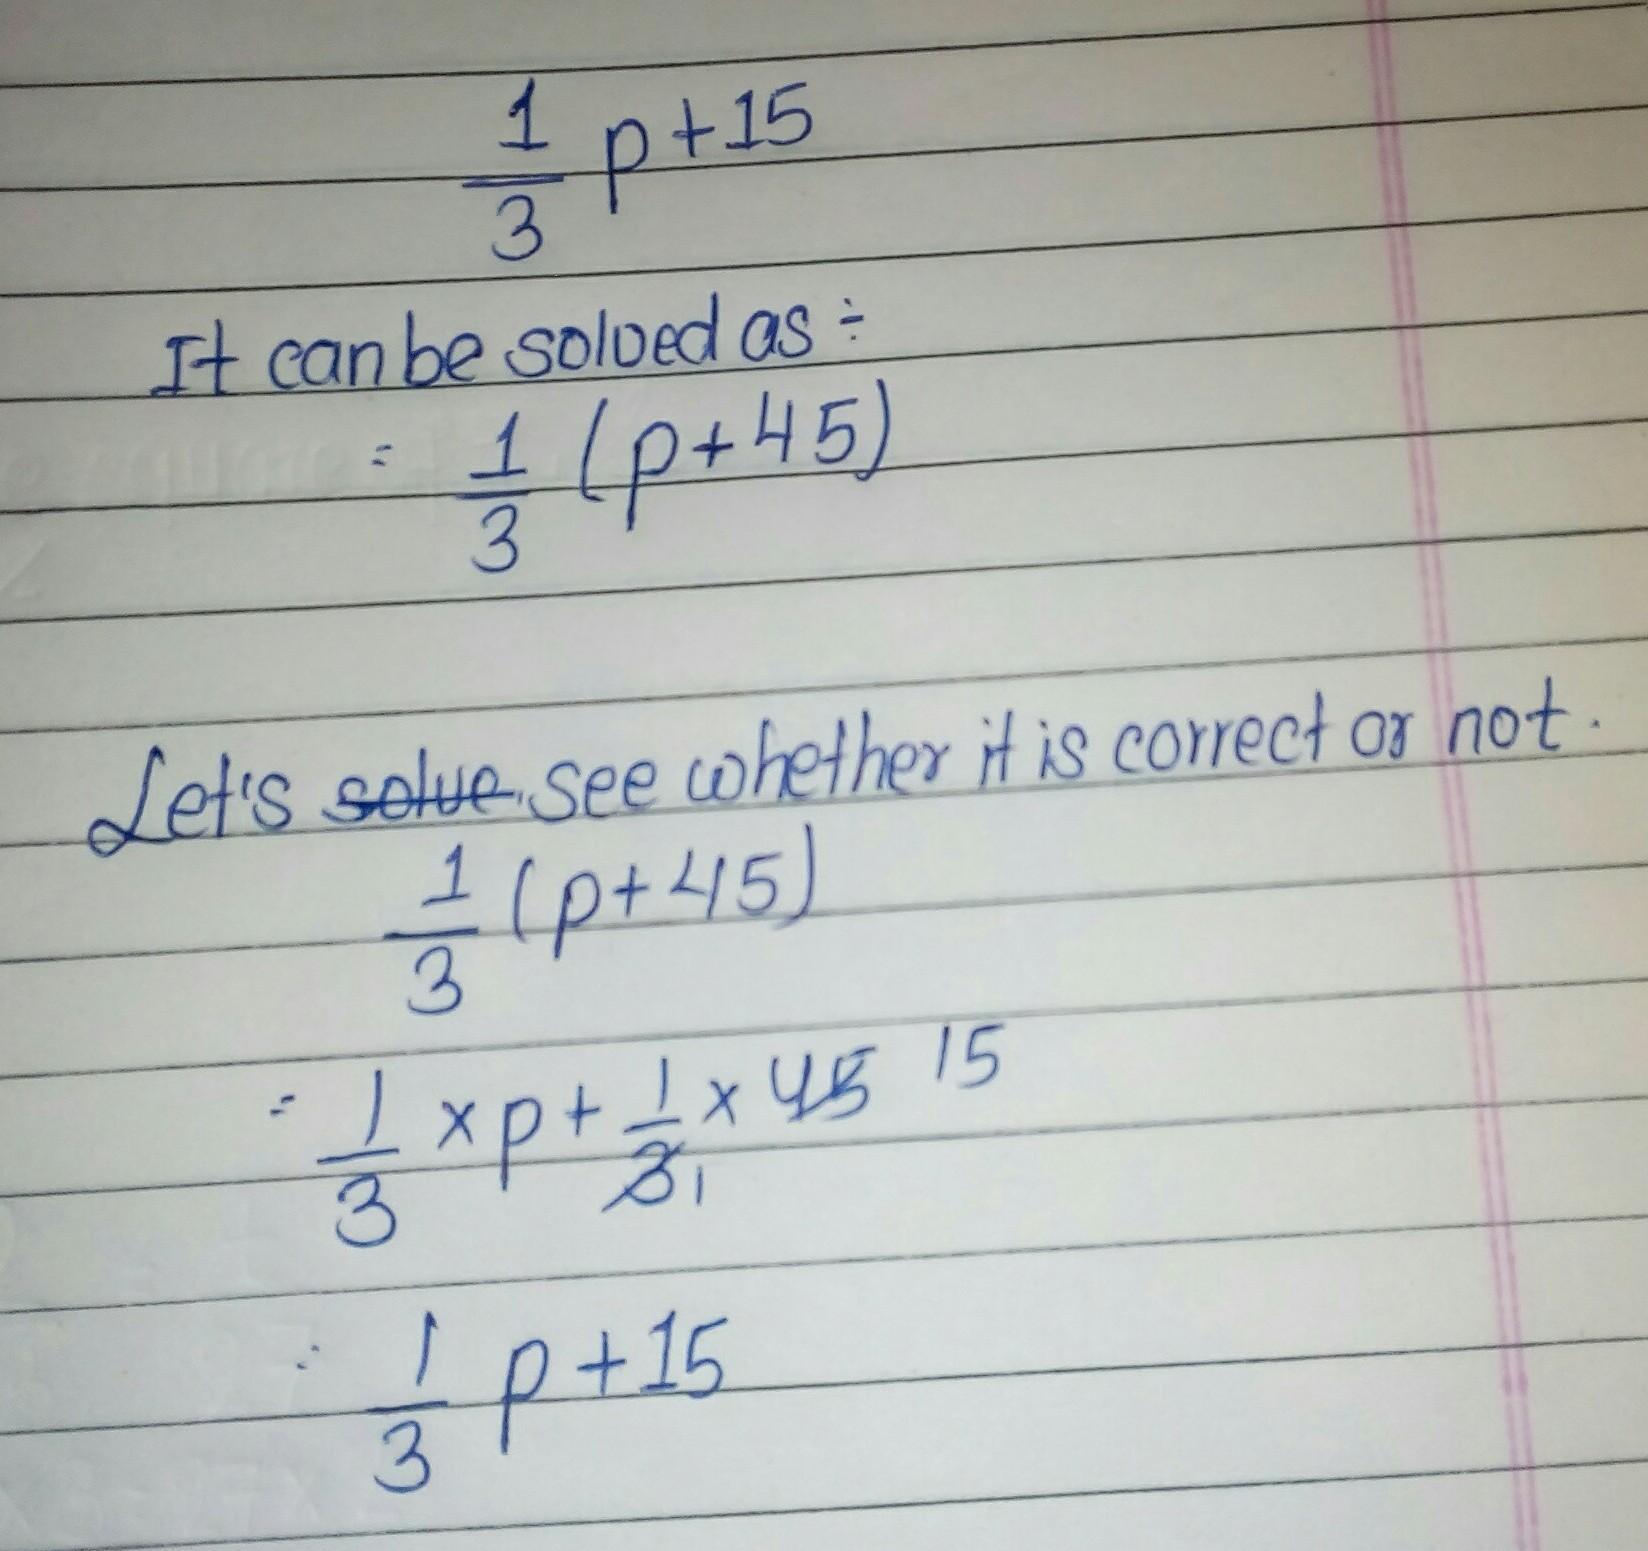 1/3 p+15
It can be solved as ÷
= 1/3 (p+45)
Let's solve see whether it is correct or not.
1/3 (p+45)
= 1/3 × p + 1/3 1 × 45 15
= 1/3 p+15